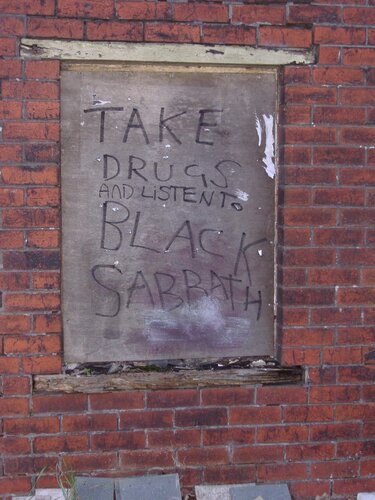 TAKE
DRUGS
AND LISTEN TO
BLACK
SABBATH